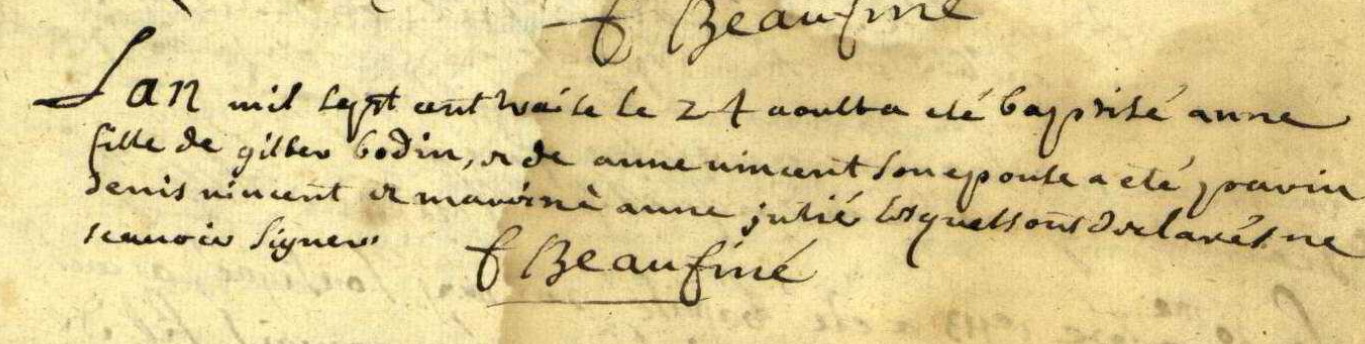 f Beaufiné
Lan mil sept cent traise le 24 aoust a eté baptisé anne
fille de gilber bodin, et de anne vincent son epouse a eté parin
denis vincent et marainè anne julié lesquels ont declarés ne
scauoir signer
f Beaufiné